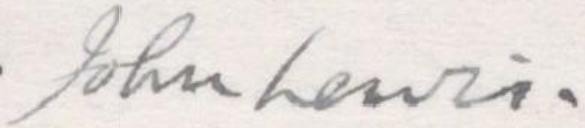 John Lewis.